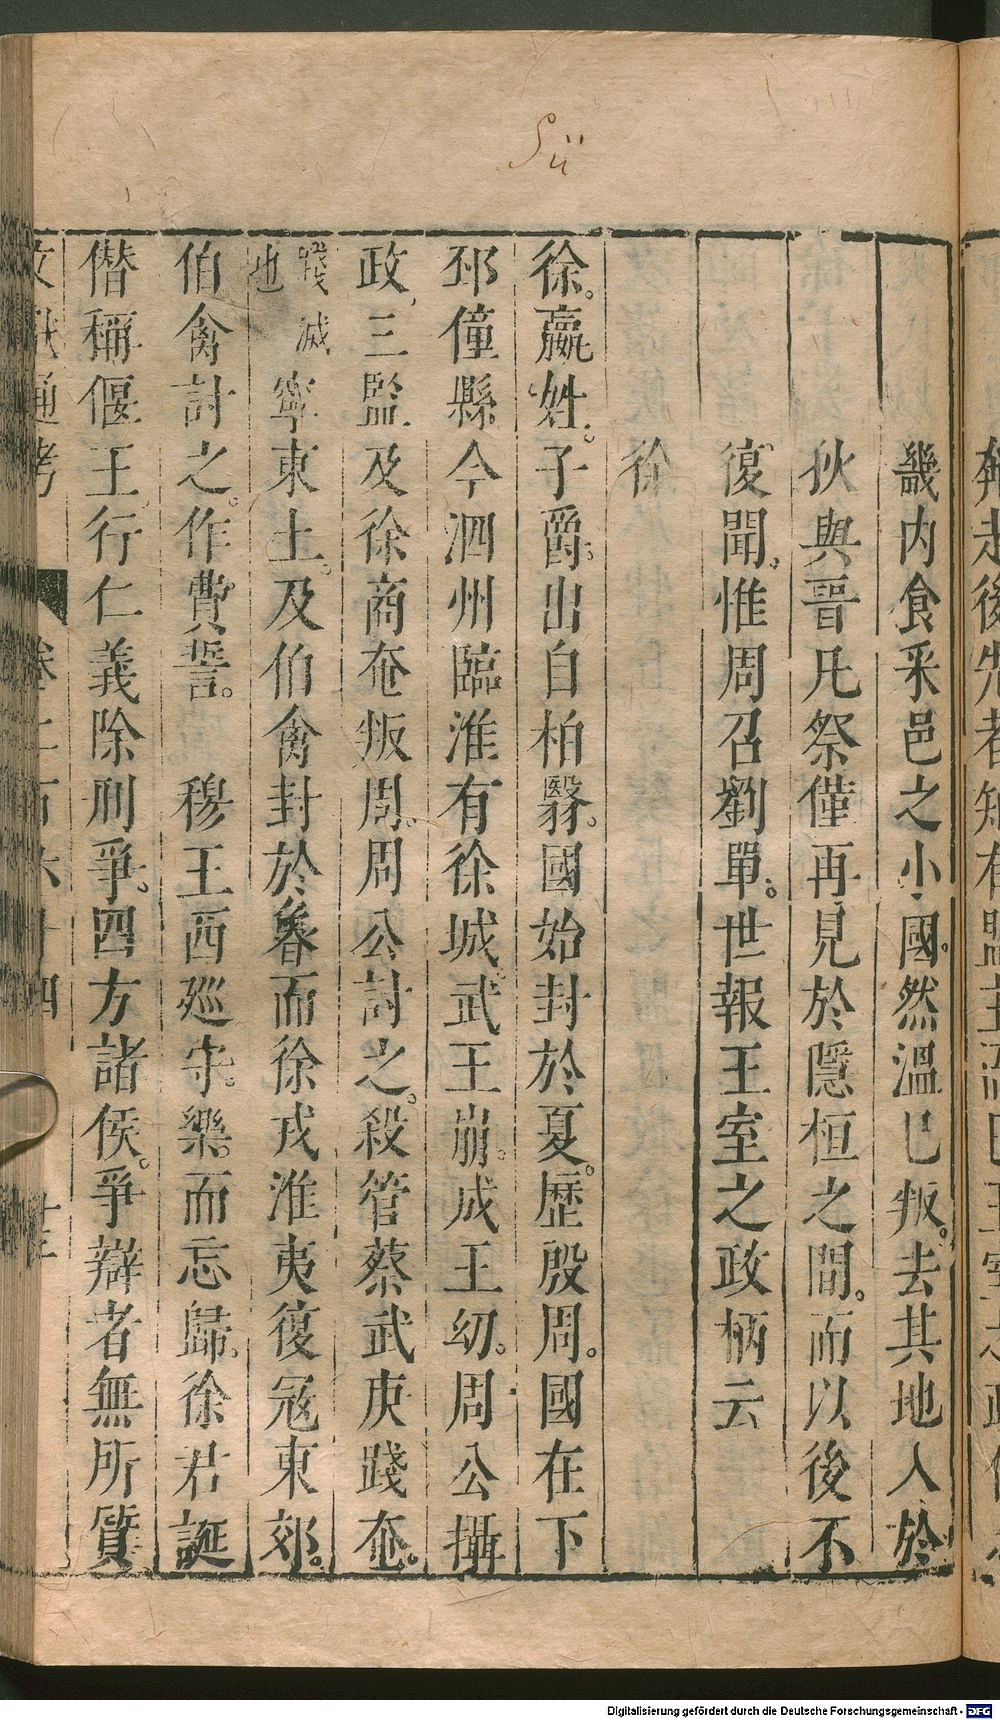 Sü
畿内食采邑之小國。然溫已叛。去其地入於
狄與晉凡祭僅再見於隱桓之間。而以後不
復聞。惟周召劉單。世報王室之政柄云
徐
徐。嬴姓。子爵。出自柏翳。國始封於夏。歷殷周。國在下
邳僮縣今泗州臨淮有徐城武王崩。成王幼。周公攝
政三監及徐商奄叛周。周公討之。殺管蔡武庚踐奄。
踐滅
也
寧東土。及伯禽封於魯而徐戎淮夷復冦東郊。
伯禽討之。作費誓。穆王西廵守。樂。而忘歸。徐君誕
僭稱偃王。行仁義除刑爭。四方諸侯。爭辯者無所質
文獻通考 卷二百六十四
Digitalisierung gefördert durch die Deutsche Forschungsgemeinschaft - DFG